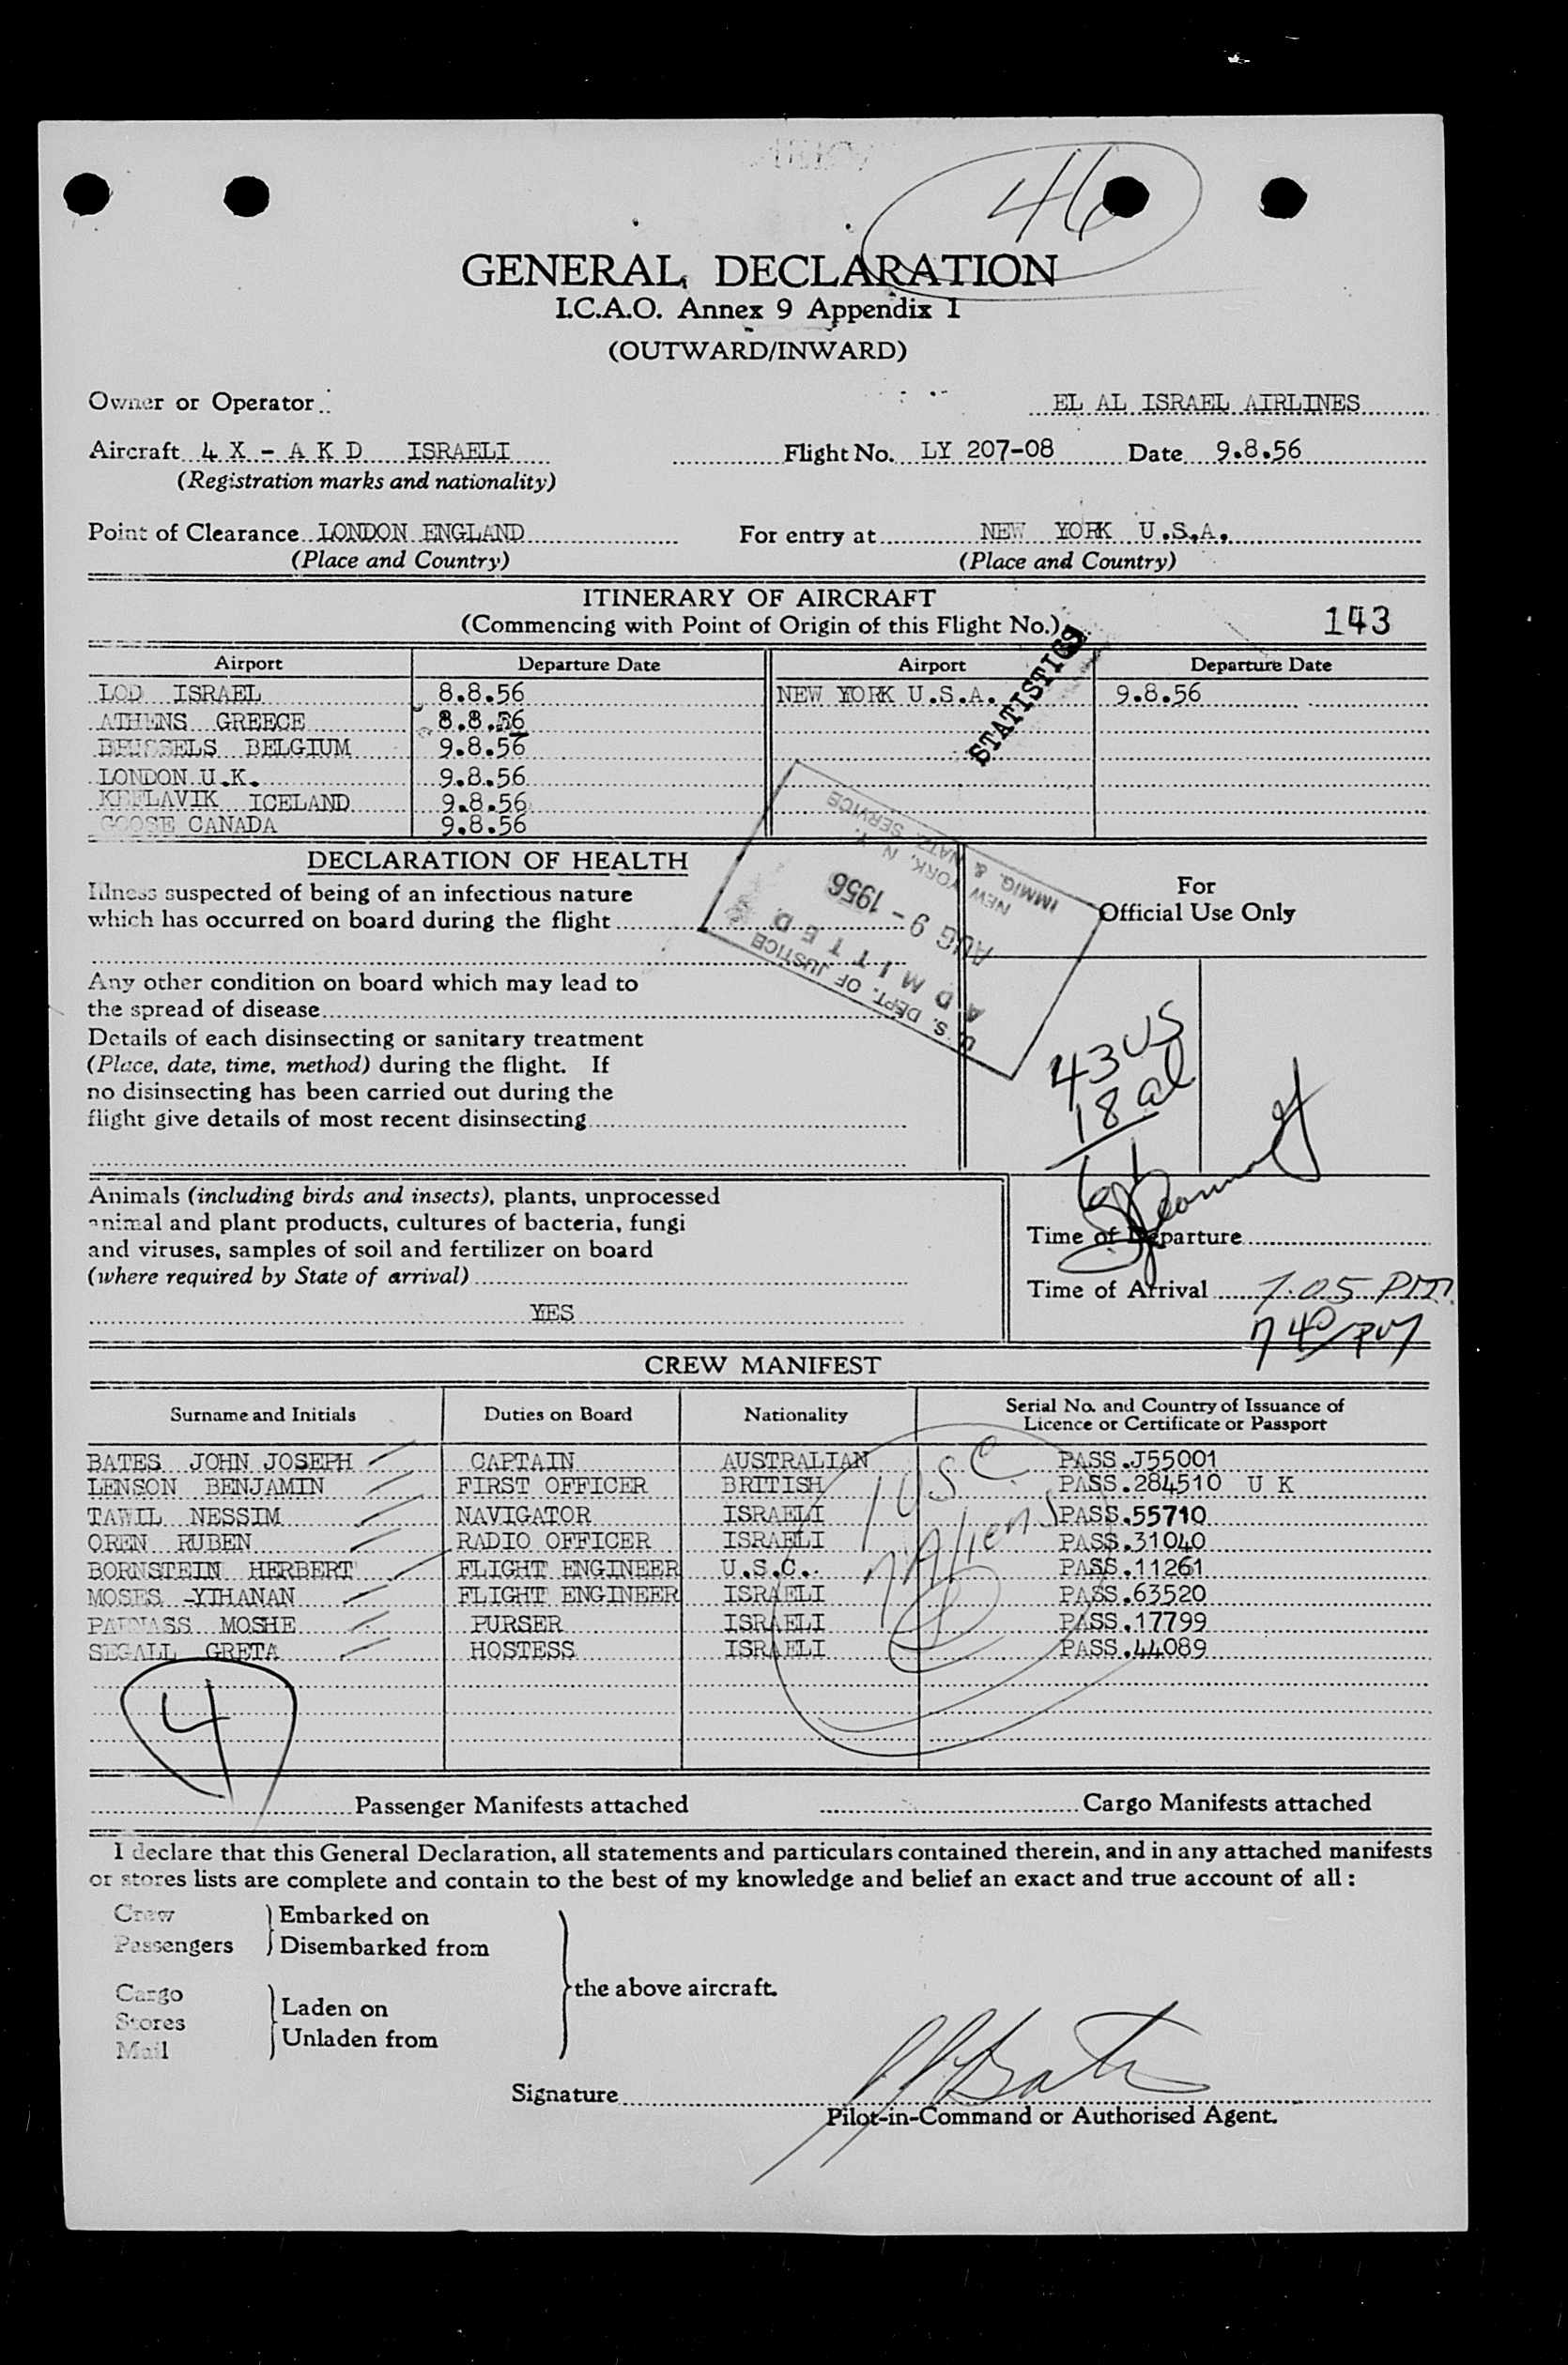 46
GENERAL DECLARATION
I.C.A.O. Annex 9 Appendix 1
(OUTWARD/INWARD)
Owner or Operator EL AL ISRAEL AIRLINES
Aircraft 4 X - A K D ISRAELI Flight No. LY 207-08 Date 9.8.56
(Registration marks and nationality)
Point of Clearance LONDON ENGLAND For entry at NEW YORK U.S.A.
(Place and Country) (Place and Country)
ITINERARY OF AIRCRAFT
(Commencing with Point of Origin of this Flight No.) 143
STATISTICS
Airport Departure Date Airport Departure Date
LOD ISRAEL 8.8.56 NEW YORK U.S.A. 9.8.56
ATHENS GREECE 8.8.56
BRUSSELS BELGIUM 9.8.56
LONDON U.K. 9.8.56
KEFLAVIK ICELAND 9.8.56
GOOSE CANADA 9.8.56
U.S. DEPT. OF JUSTICE
ADMITTED
AUG 9 - 1956
NEW YORK, N.Y.
IMMIG. & NATZ. SERVICE
DECLARATION OF HEALTH
Illness suspected of being of an infectious nature
which has occurred on board during the flight
For
Official Use Only
Any other condition on board which may lead to
the spread of disease
Details of each disinsecting or sanitary treatment
(Place, date, time, method) during the flight. If
no disinsecting has been carried out during the
flight give details of most recent disinsecting
43 US
18 al
Animals (including birds and insects), plants, unprocessed
animal and plant products, cultures of bacteria, fungi
and viruses, samples of soil and fertilizer on board
(where required by State of arrival)
YES
Time of Departure
Time of Arrival 7.05 PM
7 40 pm
CREW MANIFEST
Surname and Initials Duties on Board Nationality Serial No. and Country of Issuance of
Licence or Certificate or Passport
BATES JOHN JOSEPH CAPTAIN AUSTRALIAN PASS.J55001
LENSON BENJAMIN FIRST OFFICER BRITISH PASS.284510 U K
TAWIL NESSIM NAVIGATOR ISRAELI PASS.55710
OREN RUBEN RADIO OFFICER ISRAELI PASS.31040
BORNSTEIN HERBERT FLIGHT ENGINEER U.S.C. PASS.11261
MOSES -YIHANAN FLIGHT ENGINEER ISRAELI PASS.63520
PARNASS MOSHE PURSER ISRAELI PASS.17799
SEGALL GRETA HOSTESS ISRAELI PASS.44089
1 USC
7 Aliens
4
Passenger Manifests attached Cargo Manifests attached
I declare that this General Declaration, all statements and particulars contained therein, and in any attached manifests
or stores lists are complete and contain to the best of my knowledge and belief an exact and true account of all :
Crew Embarked on
Passengers Disembarked from
the above aircraft.
Cargo
Stores Laden on
Mail Unladen from
Signature JJ Bates
Pilot-in-Command or Authorised Agent.